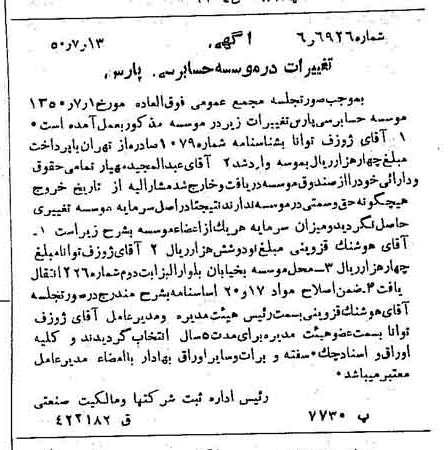 شماره ۶٫۶۹۲۶ آگهی ۵۰٫۷٫۱۳
تغییرات در موسسه حسابرسی پارس
بموجب صورتجلسه مجمع عمومی فوق‌العاده مورخ ۱٫۷٫۱۳۵۰
موسسه حسابرسی پارس تغییرات زیر در موسسه مذکور بعمل آمده است۰
۱ آقای ژوزف توانا بشناسنامه شماره ۱۰۷۹ صادره از تهران با پرداخت
مبلغ چهار هزار ریال بموسه وارد شد ۲ آقای عبدالمجید مهیار تمامی حقوق
و دارائی خود را از صندوق موسسه دریافت و خارج شد مشارالیه از تاریخ خروج
هیچگونه حق و سمتی در موسسه ندارند نتیجتا در اصل سرمایه موسسه تغییری
حاصل نگردید و میزان سرمایه هریک از اعضاء موسسه بشرح زیر است ۱ـ
آقای هوشنگ قزوینی مبلغ نود و شش هزار ریال ۲ آقای ژوزف توانا مبلغ
چهار هزار ریال ۳ـ محل موسسه بخیابان بلوار الیزابت دوم شماره ۲۲۶ انتقال
یافت ۴ـ ضمن اصلاح مواد ۱۷ و ۲۰ اساسنامه بشرح مندرج در صورتجلسه
آقای هوشنگ قزوینی بسمت رئیس هیئت مدیره و مدیر عامل آقای ژوزف
توانا بسمت عضو هیئت مدیره برای مدت ۵ سال انتخاب گردیدند و کلیه
اوراق و اسناد چک۰ سفته و برات و سایر اوراق بهادار با امضاء مدیر عامل
معتبر میباشد۰
رئیس اداره ثبت شرکتها و مالکیت صنعتی
پ ۷۷۳۰ ق ۴۲۲۱۸۲